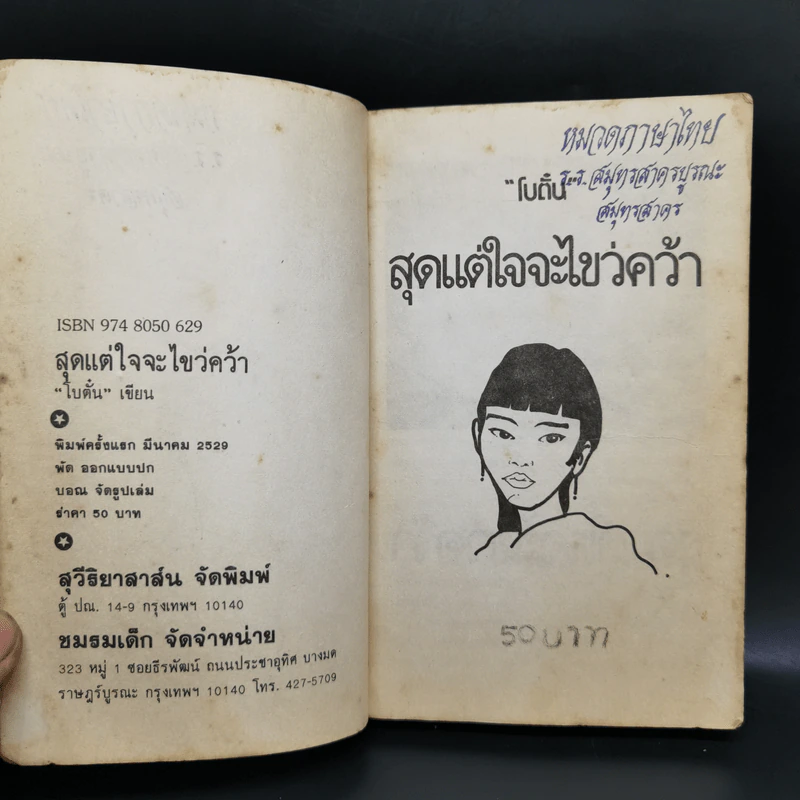 ISBN 974 8050 629
สุดแต่ใจจะไขว่คว้า
“โบตั๋น” เขียน
พิมพ์ครั้งแรก มีนาคม 2529
พัด ออกแบบปก
บอณ จัดรูปเล่ม
ราคา 50 บาท
สุวีริยาสาส์น จัดพิมพ์
ตู้ ปณ. 14-9 กรุงเทพฯ 10140
ชมรมเด็ก จัดจำหน่าย
323 หมู่ 1 ซอยธีรพัฒน์ ถนนประชาอุทิศ บางมด
ราษฎร์บูรณะ กรุงเทพฯ 10140 โทร. 427-5709
หมวดภาษาไทย
ร.ร. สมุทรสาครบูรณะ
สมุทรสาคร
“โบตั๋น”
สุดแต่ใจจะไขว่คว้า
50 บาท